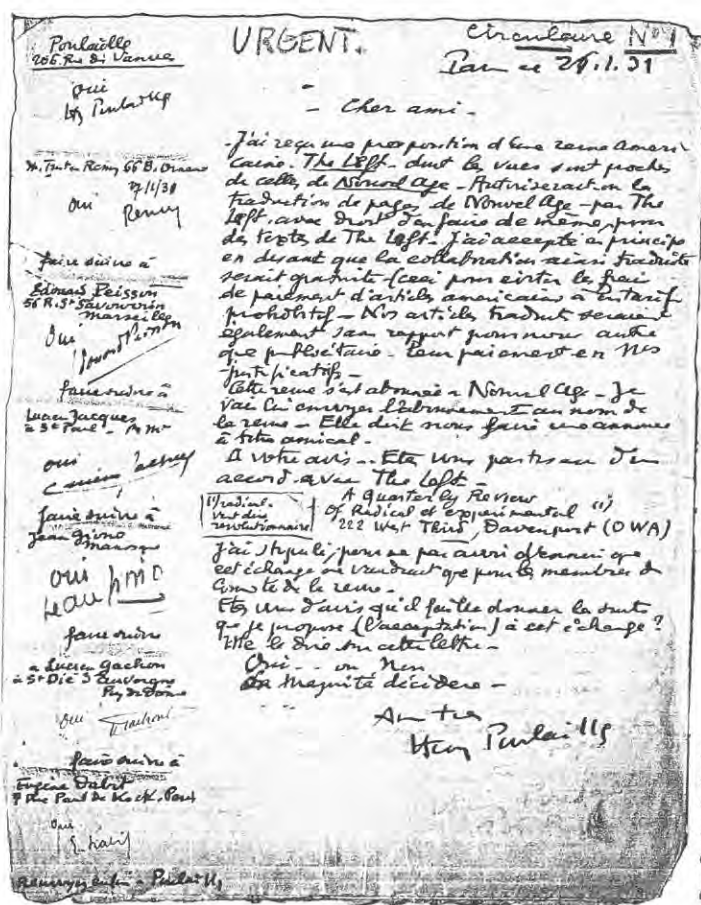 URGENT.
Circulaire N° 1
Paris ce 26.1.31
Poulaille
206 Rue de Vanves
oui
Hy Poulaille
M. Tristan Remy 66 B. Ornano
27/1/31
oui
Remy
faire suivre à
Edouard Peisson
56 R. St Savournin
Marseille
Oui
Edouard Peisson
faire suivre à
Lucien Jacques
à St Paul - A Mmes
oui
Lucien Jacques
faire suivre à
Jean Giono
Manosque
oui
Jean Giono
faire suivre
à Lucien Gachon
à St Dié d'auvergne
Puy de Dome
oui Gachon
faire suivre à
Eugène Dabit
7 Rue Paul de Kock. Paris
Oui
E. Dabit
Renvoyer enfin - Poulaille
- Cher ami -
-J'ai reçu une proposition d'une revue améri
caine. The Left - dont les vues sont proches
de celles de Nouvel Age - Autoriserait-on la
traduction de pages de Nouvel Age - par The
Left, avec droit d'en faire de même, pour
des textes de The Left - J'ai accepté en principe
en disant que la collaboration ainsi traduite
serait gratuite - (ceci pour éviter les frais
de paiement d'articles américains à un tarif
prohibitif - Nos articles traduits seraient
également sans rapport pour nous autre
que publicitaire - Leur paiement en Nos
justificatifs -
Cette revue s'est abonnée à Nouvel Age - Je
vais lui envoyer l'abonnement au nom de
la revue - Elle doit nous faire une annonce
à titre amical -
A votre avis - Etes vous partisan d'un
accord avec The Left -
A Quarterly Review
of Radical et experimental (1)
222 West Third, Davenport (OWA)
(1) radical -
veut dire
revolutionnaire
J'ai stipulé, pour ne pas avoir d'ennui que
cet échange ne vaudrait que pour les membres du
Comité de la revue -
Etes vous d'avis qu'il faille donner la suite
que je propose (l'acceptation) à cet échange ?
Me le dire sur cette lettre -
Oui - - ou Non
La Majorité décidera -
Henry Poulaille